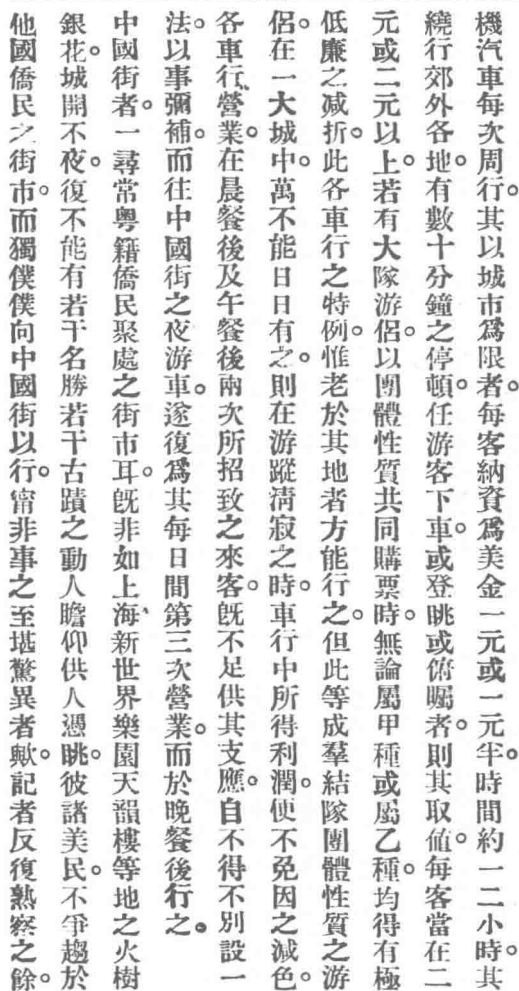 機汽車每次周行。其以城市爲限者。每客納資爲美金一元或一元半。時間約一二小時。其
繞行郊外各地。有數十分鐘之停頓。任游客下車。或登眺或俯矚者。則其取値。每客當在二
元或二元以上。若有大隊游侶。以團體性質共同購票時。無論屬甲種或屬乙種。均得有極
低廉之減折。此各車行之特例。惟老於其地者方能行之。但此等成羣結隊團體性質之游
侶。在一大城中。萬不能日日有之。則在游蹤淸寂之時。車行中所得利潤。便不免因之減色。
各車行營業。在晨餐後及午餐後兩次所招致之來客。旣不足供其支應。自不得不別設一
法。以事彌補。而往中國街之夜游車。遂復爲其每日間第三次營業。而於晚餐後行之。
中國街者。一尋常粵籍僑民聚處之街市耳。旣非如上海、新世界樂園天韻樓等地之火樹
銀花。城開不夜。復不能有若干名勝若干古蹟之動人瞻仰供人憑眺。彼諸美民。不爭趨於
他國僑民之街市。而獨僕僕向中國街以行。甯非事之至堪驚異者歟。記者反復熟察之餘。